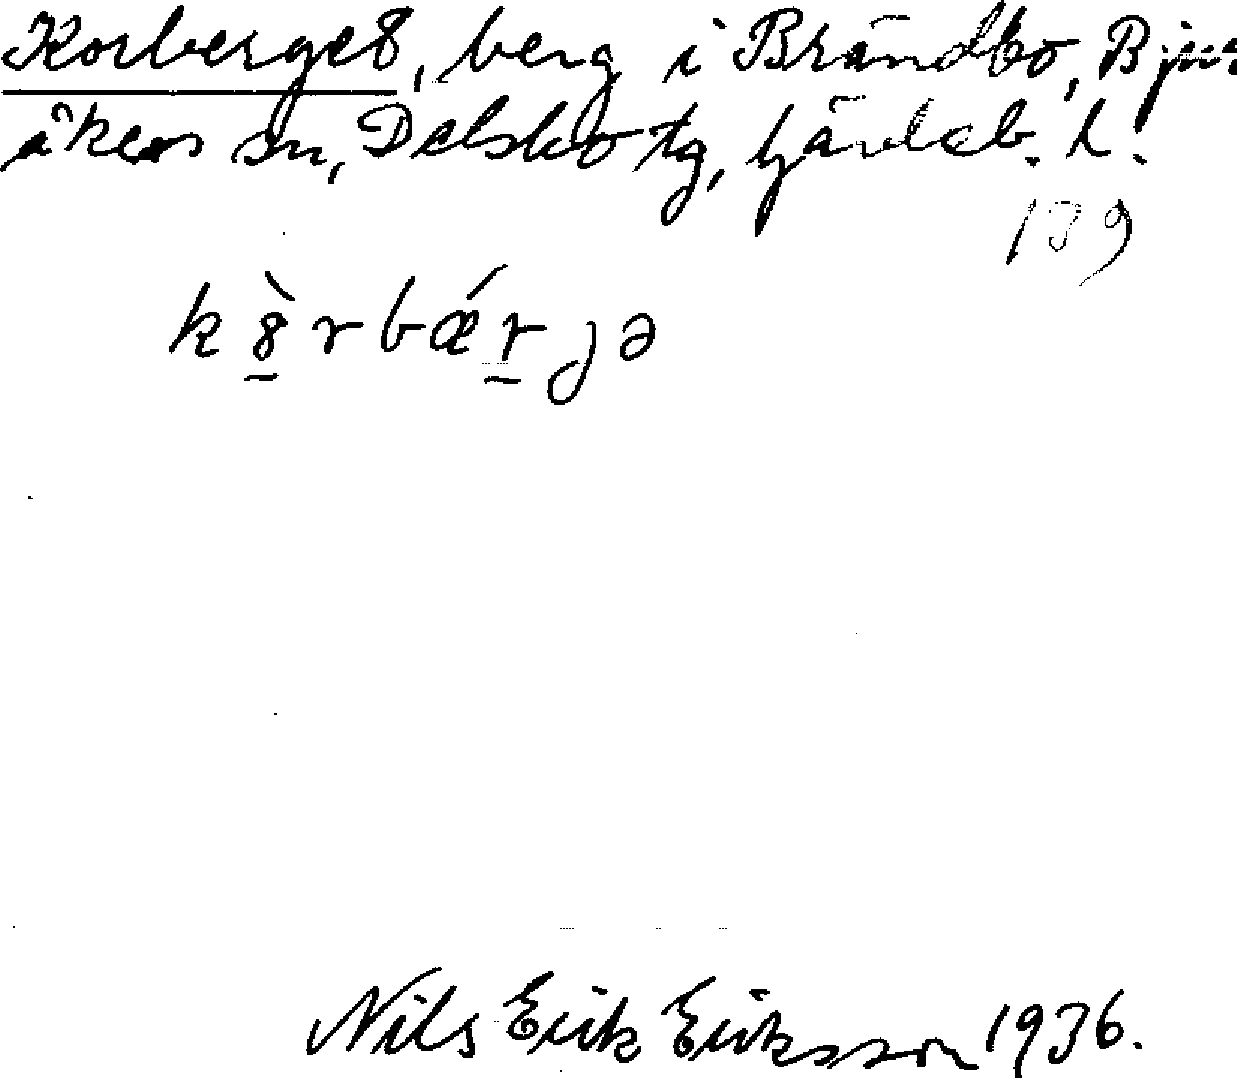 Korberget, berg i Brändbo, Bjur-
åkers sn, Delsbo tg, Gävleb. l.
139
k 8̱̀ r b ǽ ṟ ȷ ə
Nils Erik Eriksson 1936.